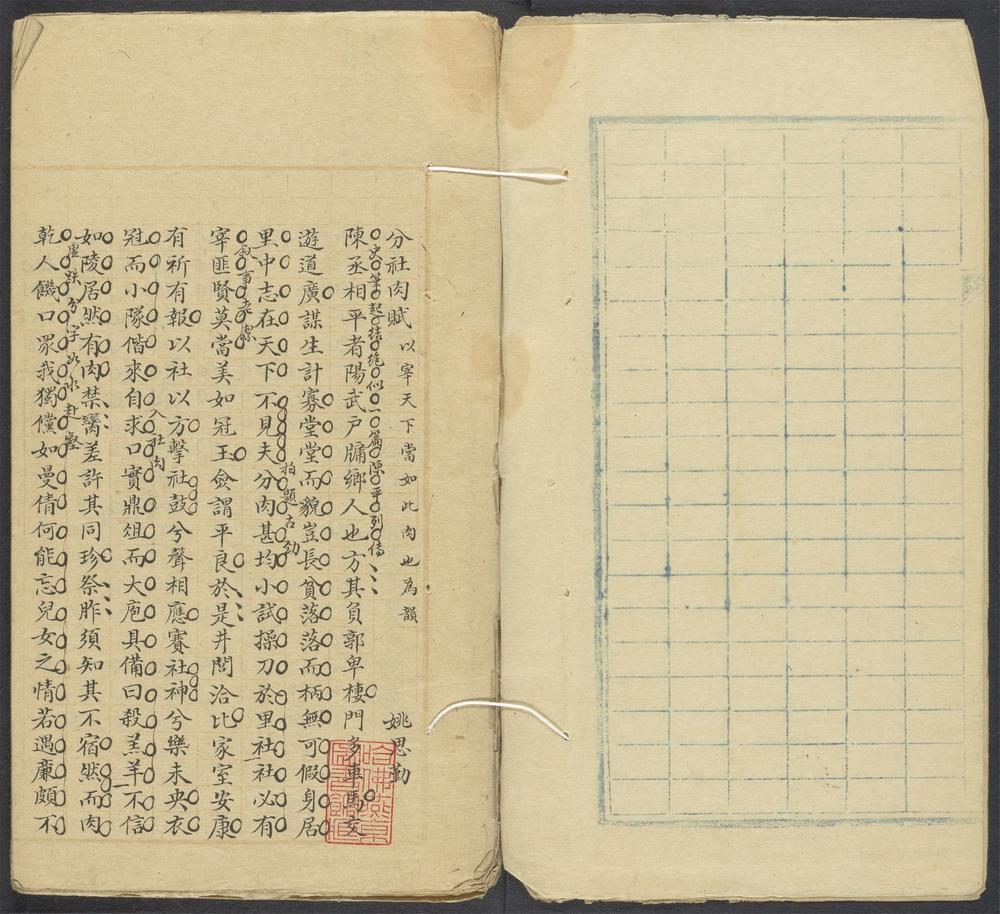 分社肉賦 以宰天下當如此肉也為韻 姚思勤
史筆起結絕似一篇陳平列傳
陳丞相平者陽武戶牖鄉人也方其負郭卑棲門多車馬交
遊道廣謀生計寡堂堂而貌豈長貧落落而柄無可假身居
拍題古勁
里中志在天下不見夫分肉甚均小試操刀於里社社必有
宰匪賢莫當美如冠玉僉謂平良於是井閭洽比家室安康
有祈有報以社以方擊社鼓兮聲相應賽社神兮樂未央衣
入社肉
冠而小隊偕來自求口實鼎俎而大庖具備曰殺羔羊不信
如陵居然有肉禁臠差許其同珍祭胙須知其不宿然而肉
虛跌分字如水赴壑
乾人饑口眾我獨儻如曼倩何能忘兒女之情若遇廉頗不
哈佛燕京圖書館